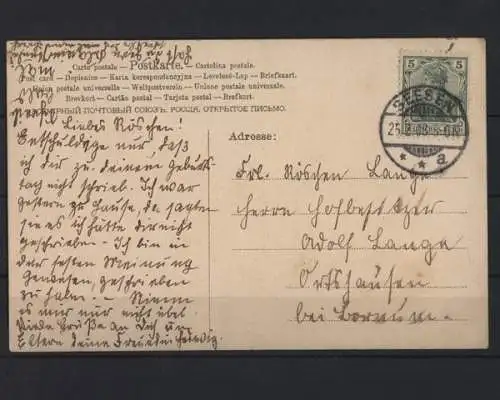 Carte postale - Postkarte - Cartolina postale
Post card - Dopisnice - Karta korespondencyjna - Levelező-Lap - Briefkaart
Union postale universelle - Weltpostverein - Unione postale universale
Brevkort - Cartão postal - Tarjeta postal - Brefkort.
ВСЕМІРНЫЙ ПОЧТОВЫЙ СОЮЗЪ. РОССІЯ. ОТКРЫТОЕ ПИСЬМО.
5 5
SEESEN
* * a
Liebes Röschen!
Entschuldige nur daß
ich dir zu deinem Geburts
tag nicht schrieb. Ich war
gestern zu Hause, da sagten
sie es ich hätte dir nicht
geschrieben - Ich bin in
der festen Meinung
gewesen, geschrieben
zu haben. - Nimm
es mir nur nicht übel
Viele Grüße an Dich und
Eltern deine Freundin Hedwig
Adresse:
Frl. Röschen Lange
Herrn Hofbesitzer
Adolf Lange
Ortshausen
bei Bornum -